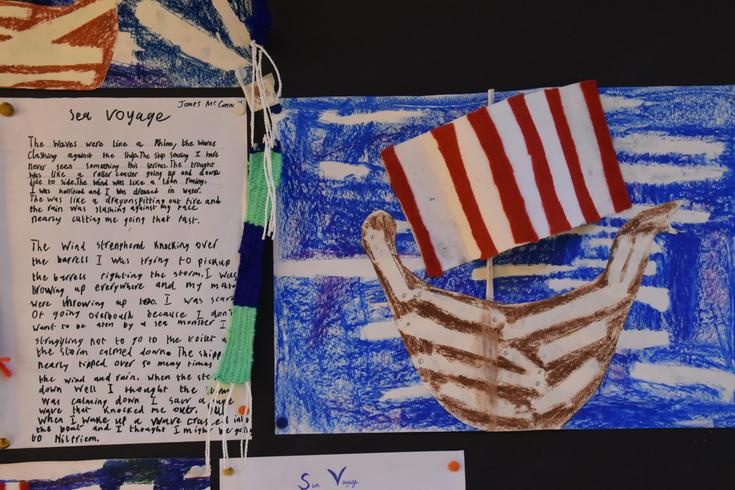 James McConn
Sea Voyage
The Waves were like a Rhino, the waves
Clashing against the ship. The ship saying I have
never seen something this serius. The trought
was like a roller coaster going up and down
side to side. The wind was like a Lion roaring.
I was horrified and I was drowned in water.
The was like a dryons pitting out fire and
the rain was slashing against my face
nearly cutting me going that fast.
The wind strenghend knocking over
the barrels I was trying to pickup
the barrels righting the storm. I was
throwing up everywhere and my mate
were throwing up too. I was scare
Of going overbouth because I don
want to be aten by a sea monster I
struggling not to go to the toilet u
the storm calmed down. The shipp
nearly tipped over so many times
the wind and rain. When the sto
down well I thought the
was calming down I saw a
wave that knocked me out.
When I wake up a wave crashed into
the boat and I thought I might be goin
to Nilfriem.
Sea Voyage